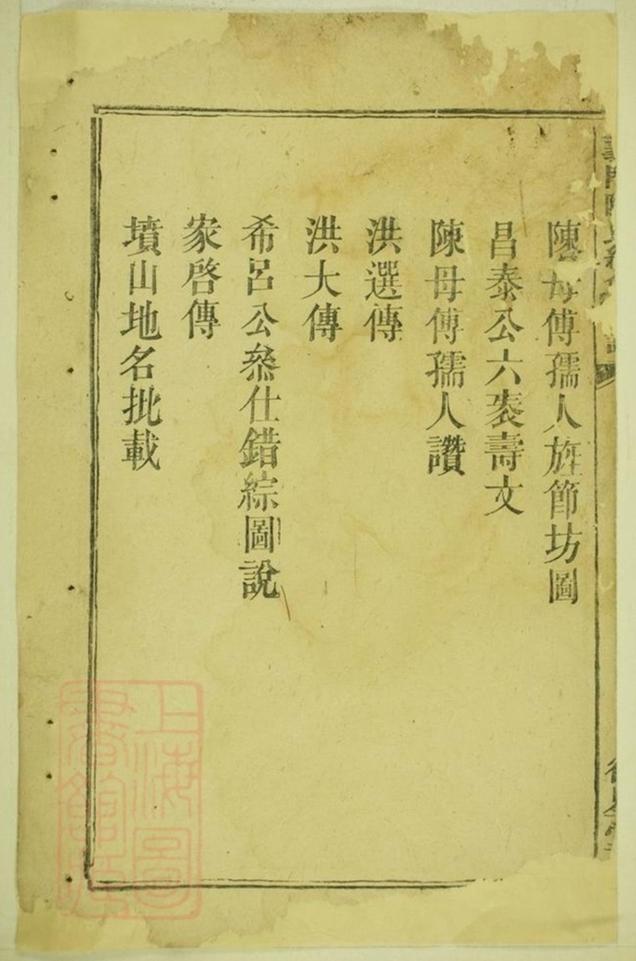 陳母傅孺人旌節坊圖
昌泰公六袠壽文
陳母傅孺人讚
洪選傳
洪大傳
希呂公叅仕錯綜圖說
家啓傳
墳山地名批載
上海圖書館藏